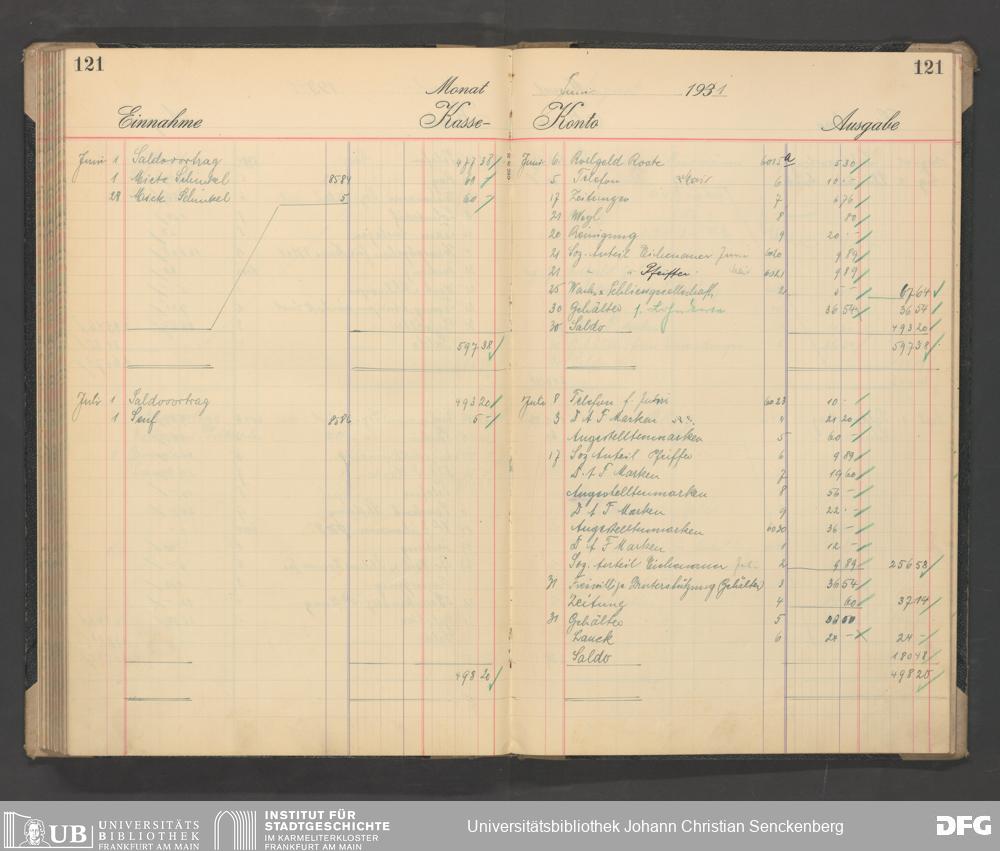 121
Monat
Einnahme Kasse-
Juni 1 Saldovortrag 477 38
1 Miete Schinkel 8584 60 -
29 Miete Schinkel 5 60 -
597 38
Juli 1 Saldovortrag 493 20
1 Senf 8586 5 -
498 20
121
Juni 1931
Konto Ausgabe
Juni 6 Rollgeld Rode 6015 a 5 30
5 Telefon 6 10 -
17 Zeitungen 7 6 76
21 8 80
20 Reinigung 9 20 -
21 Soz. Anteil Eichenauer Juni 6020 9 89
21 " " Pfeiffer 6021 9 89
25 Wach- u. Schliessgesellschaft 2 5 - 67 64
30 Gehälter 36 54 36 54
30 Saldo 493 20
597 38
Juli 8 Telefon f. Juni 6023 10 -
3 D A F Marken 4 21 20
Angestelltenmarken 5 60 -
17 Soz. Anteil Pfeiffer 6 9 89
D A F Marken 7 19 60
Angestelltenmarken 8 56 -
D A F Marken 9 22 -
Angestelltenmarken 6030 36 -
D A F Marken 1 12 -
Soz. Anteil Eichenauer 2 9 89 256 58
31 Freiwillige Unterstützung (Gehälter) 3 36 54
Zeitung 4 60 37 14
31 Gehälter 5
Lauck 6 24 - 24 -
Saldo 180 48
498 20
UB UNIVERSITÄTS
BIBLIOTHEK
FRANKFURT AM MAIN
INSTITUT FÜR
STADTGESCHICHTE
IM KARMELITERKLOSTER
FRANKFURT AM MAIN
Universitätsbibliothek Johann Christian Senckenberg
DFG